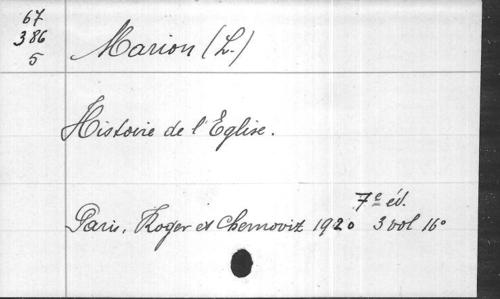 67
386
5
Marion (L.)
Histoire de l'Eglise.
7e éd.
Paris, Roger et Chernoviz 1920 3 vol 16°